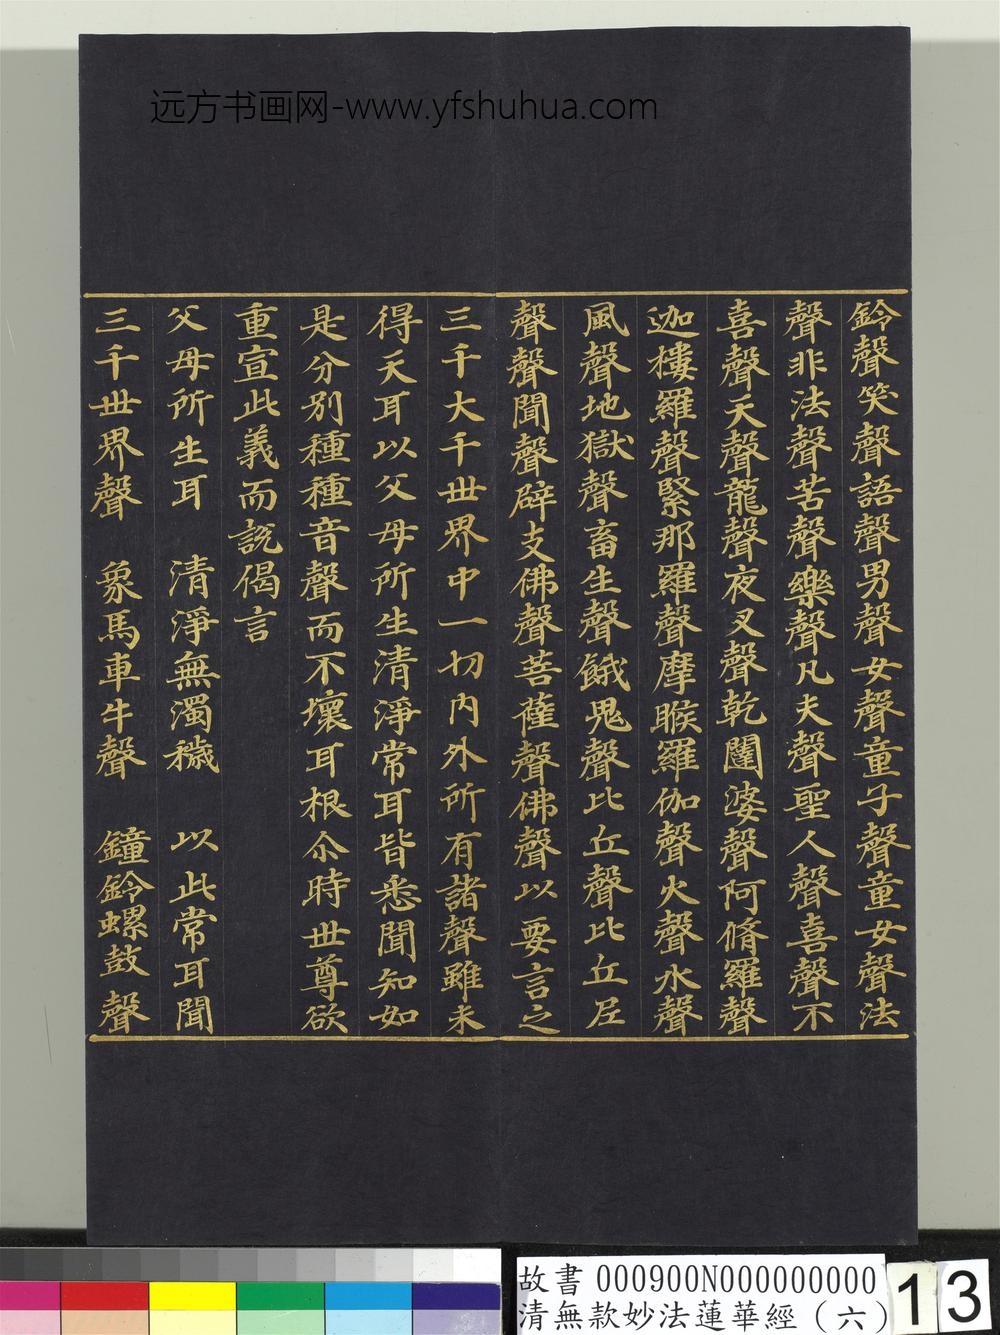 远方书画网-www.yfshuhua.com
鈴聲笑聲語聲男聲女聲童子聲童女聲法
聲非法聲苦聲樂聲凡夫聲聖人聲喜聲不
喜聲天聲龍聲夜叉聲乾闥婆聲阿脩羅聲
迦樓羅聲緊那羅聲摩睺羅伽聲火聲水聲
風聲地獄聲畜生聲餓鬼聲比丘聲比丘尼
聲聲聞聲辟支佛聲菩薩聲佛聲以要言之
三千大千世界中一切內外所有諸聲雖未
得天耳以父母所生清淨常耳皆悉聞知如
是分別種種音聲而不壞耳根尒時世尊欲
重宣此義而說偈言
父母所生耳　清淨無濁穢　以此常耳聞
三千世界聲　象馬車牛聲　鐘鈴螺鼓聲
故書 000900N000000000
清無款妙法蓮華經（六）
13